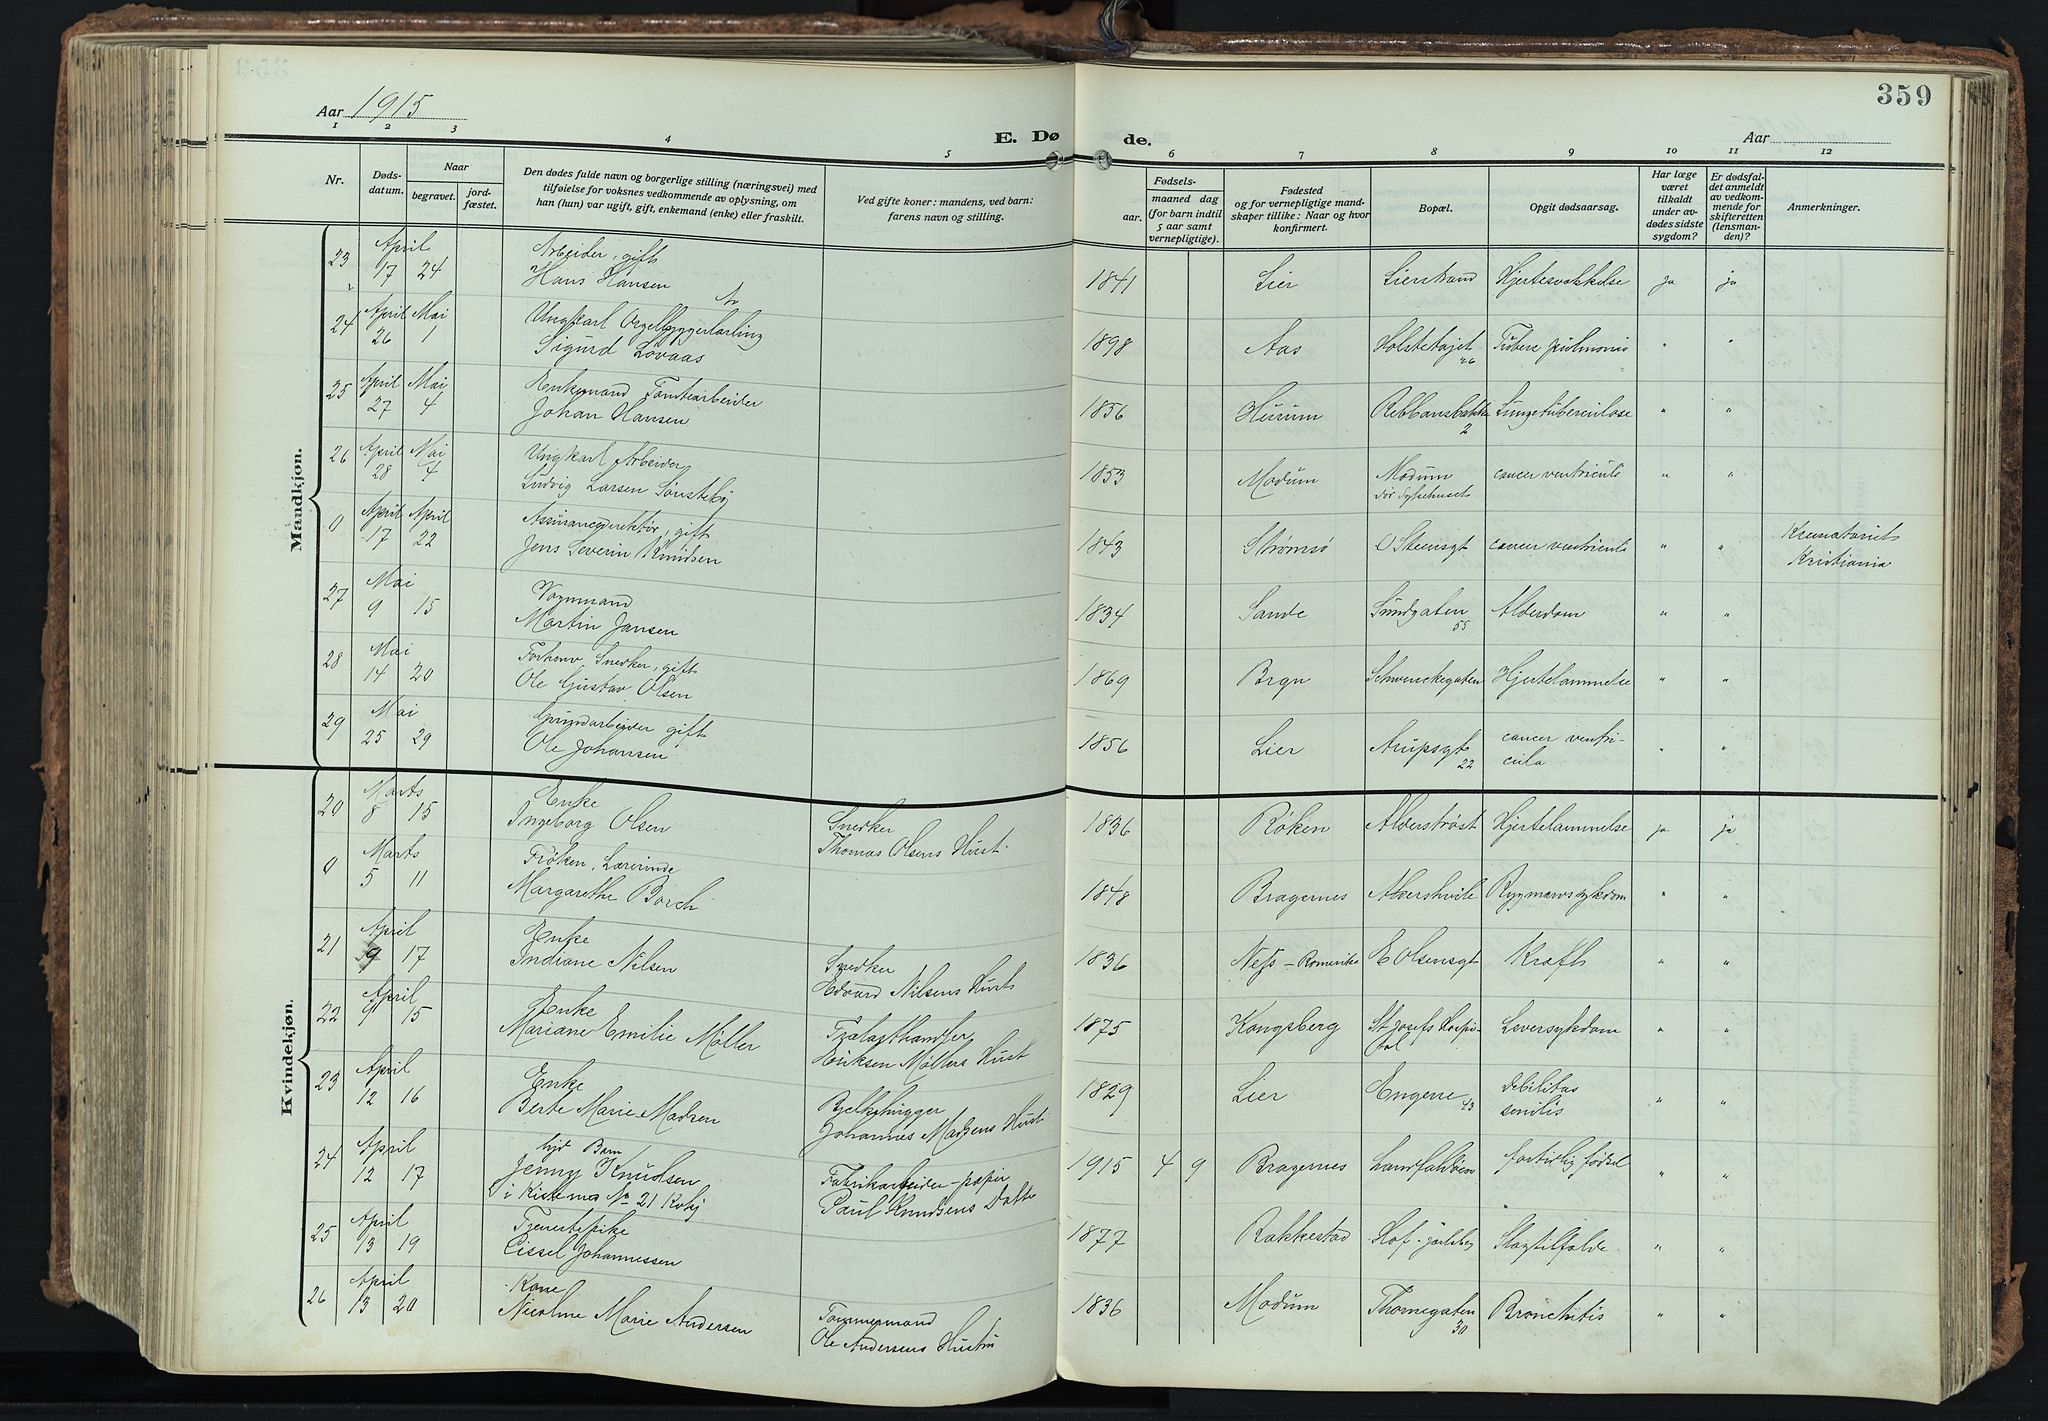 359
Aar 1915
E. Dø de.
Aar
1 2 3 4 5 6 7 8 9 10 11 12
Nr.
Døds-
datum.
Naar
begravet.
jord-
fæstet.
Den dødes fulde navn og borgerlige stilling (næringsvei) med
tilføielse for voksnes vedkommende av oplysning, om
han (hun) var ugift, gift, enkemand (enke) eller fraskilt.
Ved gifte koner: mandens, ved barn:
farens navn og stilling.
Fødsels-
aar.
maaned dag
(for barn indtil
5 aar samt
vernepligtige).
Fødested
og for vernepligtige mand-
skaper tillike: Naar og hvor
konfirmert.
Bopæl.
Opgit dødsaarsag.
Har læge
været
tilkaldt
under av-
dødes sidste
sygdom?
Er dødsfal-
det anmeldt
av vedkom-
mende for
skifteretten
(lensman-
den)?
Anmerkninger.
Mandkjøn.
April Arbeider, gift
23 17 24 Hans Hansen 1841 Lier Lierstrand Hjertesvakkelse ja ja
April Mai Ungkarl Orgelbyggerlærling
24 26 1 Sigurd Lövaas 1898 Aas Holstetøjet 26 Tuberc pulmonis " "
April Mai Enkemand Tomtearbeider
25 27 4 Johan Hansen 1856 Hurum Rebbansbakken 2 Lungetuberculose " "
April Mai Ungkarl Arbeider
26 28 4 Ludvig Larsen Sønstebø 1853 Modum Modum
før Sykehuset cancer ventriculi " "
April April Assurancedirektør, gift
0 17 22 Jens Severin Knudsen 1843 Strømsø O Steensgt cancer ventriculi " " Krematoriet
Kristiania
Mai Vognmand
27 9 15 Martin Jansen 1834 Sande Sundgaten 55 Alderdom " "
Mai Forhenv. Snedker, gift
28 14 20 Ole Gustav Olsen 1869 Brgn Schwenckegaten Hjertelammelse " "
Mai Grundarbeider gift
29 25 29 Ole Johansen 1856 Lier Arupsgt 22 cancer ventri-
cula " "
Kvindekjøn.
Marts Enke
20 8 15 Ingeborg Olsen Snedker
Thomas Olsens Hust. 1836 Røken Alderstrøst Hjertelammelse ja ja
Marts Frøken, Lærerinde
0 5 11 Margarethe Borch 1848 Bragernes Akershvile Rygmarvssykdom " "
April Enke
21 9 17 Indiane Nilsen Snedker
Edvard Nilsens Hust 1836 Nefs - Romerike E Olsensgt Kræft " "
April Enke
22 9 15 Mariane Emilie Møller Fælagthandler
Eriksen Møllers Hust 1875 Kongsberg St Josefs Hospi-
tal Leversykdom " "
April Enke
23 12 16 Berte Marie Madsen Bjelkehugger
Johannes Madsens Hust. 1829 Lier Engene 43 debilitas
senilis " "
April Barn
24 12 17 Jenny Knudsen
i Kiste No 21 Fabrikarbeider - papir
Paul Knudsens Datter 1915 4 9 Bragernes Landfaldøien fortidlig fødsel " "
April Tjenestepike
25 13 19 Cissel Johannessen 1877 Rakkestad Hof - Jarlsberg Slagtilfælde " "
April Kone
26 13 20 Nicoline Marie Andersen Tømmermand
Ole Andersens Hustru 1836 Modum Thornegaten 30 Bronchitis " "